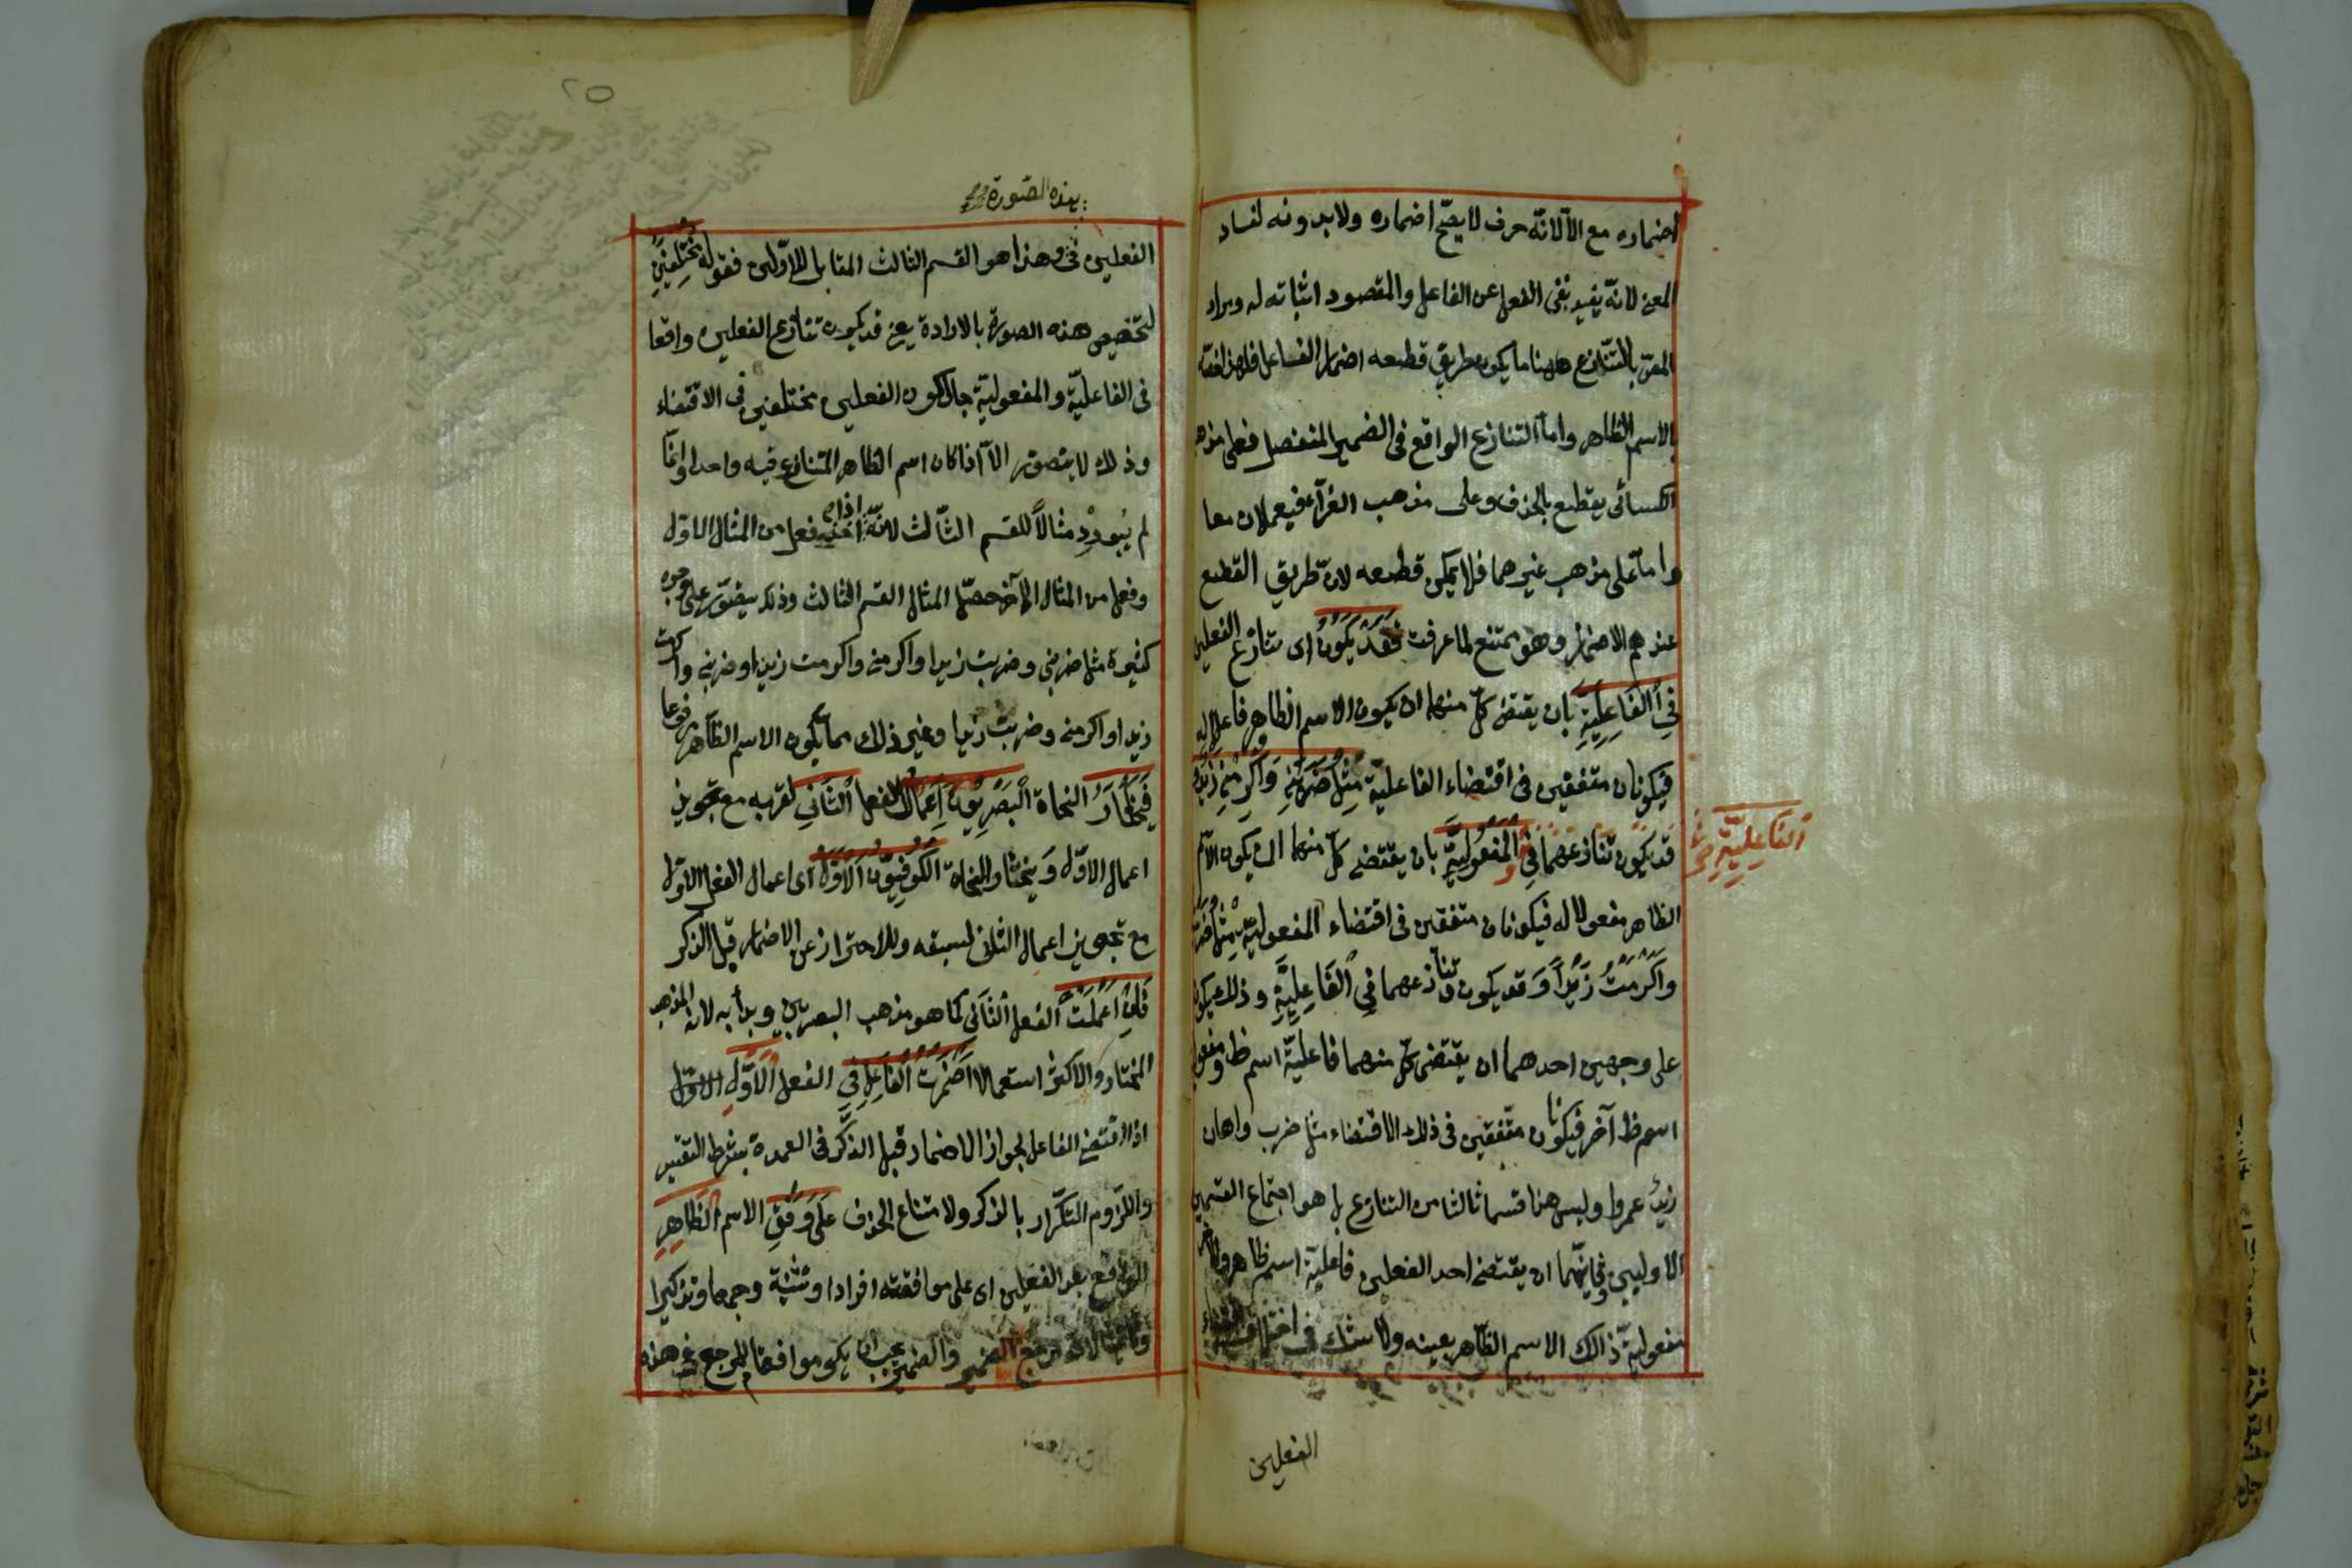 اضماره مع الّا لانّه حرف لا يصحّ اضماره ولا بدونه لفساد
المعنى لانّه يفيد نفى الفعل عن الفاعل والمقصود اثباته له ومراد
المص بالتّنازع ههنا ما يكون طريق قطعه اضمار الفاعل فلهذا خصّه
بالاسم الظاهر واما التنازع الواقع فى الضمير المنفصل فعلى مذهب
الكسائى يقطع بالحذف وعلى مذهب الفرّآء فيعملان معا
وامّا على مذهب غيرهما فلا يمكن قطعه لانّ طريق القطع
عندهم الاضمار وهو ممتنع لما عرفت فَقَدْ يَكُونُ اى تنازع الفعلين
فِي الْفَاعِلِيَّةِ بان يقتضى كلّ منهما ان يكون الاسم الظاهر فاعلا له
فيكونان متفقين فى اقتضاء الفاعليّة مِثْلُ ضَرَبَنِي وَاَكْرَمَنِي زَيْدٌ
و قد يكون تنازعهما فِي الْمَفْعُولِيَّةِ بان يقتضى كلّ منهما ان يكون الاسم
الفَاعِلِيَّةِ
الظاهر مفعولا له فيكونان متفقين فى اقتضاء المفعولية مِثْلُ ضَرَبْتُ
وَاَكْرَمْتُ زَيْداً وَقد يكون تنازعهما فِي الْفَاعِلِيَّةِ وذلك يكون
على وجهين احدهما ان يقتضى كلّ منهما فاعليّة اسم ظ ومفعولية
اسم ظ آخر فيكونان متّفقين فى ذلك الاقتضاء مثل ضرب واهان
زيدٌ عمروا وليس هذا قسما ثالثا من التنازع بل هو اجتماع القسمين
الاوليين وثانيهما ان يقتضى احد الفعلين فاعليّة اسم ظاهر والآخر
مفعوليّة ذالك الاسم الظّاهر بعينه ولا شك فى اختلاف اقتضاء
الفعلين
٢٥
بهذه الصّورة
الفعلين فى وهذا هو القسم الثالث المقابل للاوّلين فقوله مُخْتَلِفَيْنِ
لتخصيص هذه الصورة بالارادة يعنى قد يكون تنازع الفعلين واقعا
فى الفاعليّة والمفعوليّة حال كون الفعلين مختلفين فى الاقتضاء
وذلك لا يتصوّر الّا اذا كان اسم الظاهر المتنازع فيه واحدا وانّما
لم يُورِدْ مثالاً للقسم الثّالث لانّه اذا اخذ فعل من المثال الاوّل
وفعل من المثال الآخر حصل المثال القسم الثالث وذلك يتصوّر على وجوه
كثيرة مثل ضربنى وضربت زيدا واكرمنى واكرمت زيدا وضربنى واكرمت
زيدا واكرمنى وضربت زيدا وغير ذلك مما يكون الاسم الظّاهر مرفوعا
فَيَخْتَارُ النحاة الْبَصْرِيُّونَ اِعْمَالَ الفعل الثَّانِي لقربه مع تجويز
اعمال الاوّل وَيختار النحاة الْكُوفِيُّونَ الْاَوَّلَ اى اعمال الفعل الاوّل
مع تجويز اعمال الثانى لسبقه وللاحتراز عن الاضمار قبل الذكر
فَاِنْ اَعْمَلْتَ الفعل الثَّانِي كما هو مذهب البصريين وبدأ به لانه المذهب
المختار والاكثر استعمالا اَضْمَرْتَ الْفَاعِلَ فِي الفعل الْاَوَّلِ
اذا اقتضى الفاعل لجواز الاضمار قبل الذّكر فى العمدة بشرط التفسير
واللزوم التكّرار بالذكر ولامتناع الحذف عَلَى وَفْقِ الاسم الظَّاهِرِ
الواقع بعد الفعلين اى على موافقته افرادا وتثنية وجمعا وتذكيرا
وتأنيثا لانّه مرجع الضمير والضمير يجب ان يكون موافقا للمرجع هذه